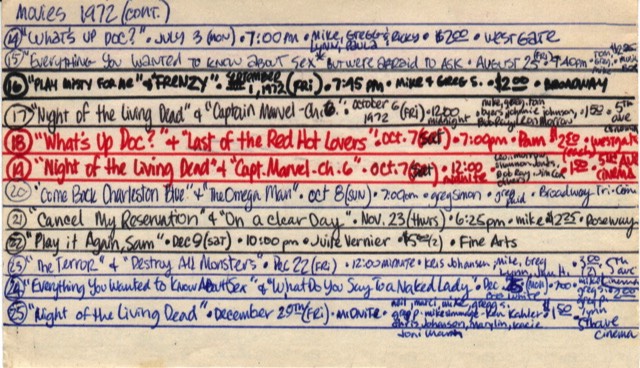 movies 1972 (cont.)
14 "What's up Doc?" • July 3 (mon) • 7:00pm • Mike, Gregg & Ricky • $2.00 • Westgate
Lynn, Paula
15 "Everything you wanted to know about sex* But were afraid to ask • August 25 (Fri)
16 "Play Misty for Me" & "Frenzy" • September 1, 1972 (Fri) • 7:45 pm • Mike & Greg S. • $2.00 • Broadway
17 "Night of the Living Dead" & "Captain Marvel - Ch. 6 • October 6 1972 (Fri) • 12:00 midnight • mike, greg, tom • 1.50 • 5th ave cinema
18 "What's Up Doc?" & "Last of the Red Hot Lovers" • Oct. 7 (Sat) • 7:00pm • Pam $2.00 • Westgate
19 "Night of the Living Dead" & "Capt. Marvel - ch. 6" • Oct. 7 (Sat) • 12:00 midnite • 1.50 • 5th Ave Cinema
20 "Come Back Charleston Blue" & "The Omega Man" • Oct 8 (Sun) • 7:00pm • greg simon • Broadway Tri-Cin
21 "Cancel My Reservation" & "On a clear Day" • Nov. 23 (thurs) • 6:25pm • mike $2.25 • Roseway
22 "Play it Again, Sam" • Dec 9 (Sat) • 10:00 pm • Julie Vernier • $5.00 (2) • Fine Arts
23 "The Terror" & "Destroy All Monsters" • Dec 22 (Fri) • 12:00 midnite • Kris Johansen, mike, Greg • 3.00 (2) • 5th ave cinema
Lynn, Jim H.
24 "Everything You Wanted to Know About Sex" & "What Do You Say To a Naked Lady" • Dec 25 (mon) • 7:00 • mike greg s. greg p. Lynn • 2.00
25 "Night of the Living Dead" • December 29th (Fri) • midnite • neil, marci, mike, gregg s. • $1.50
greg p. mike • Ken Kahler • 5th ave cinema
chris johanson, marylin, kacie
Joni